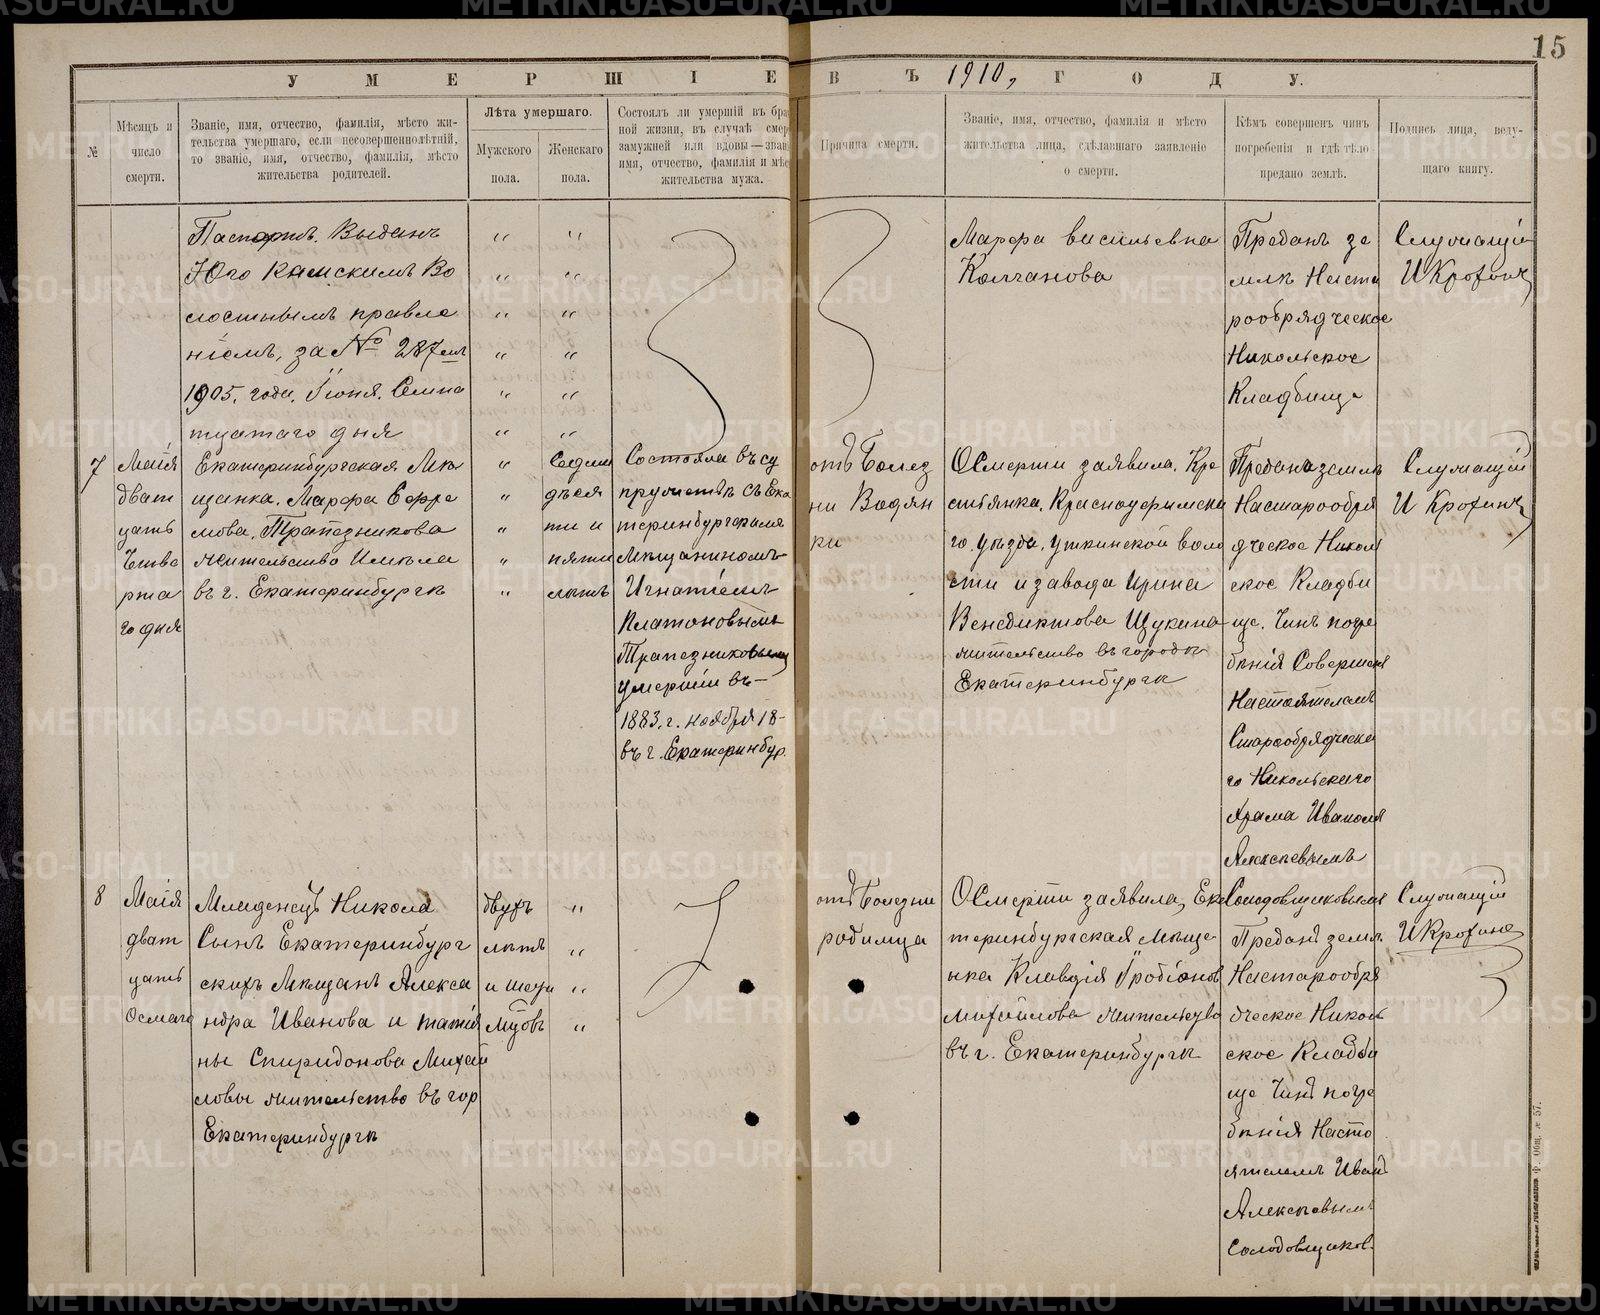 15
УМЕРШІЕ ВЪ 1910, ГОДУ.
№
Мѣсяцъ и
число
смерти.
Званіе, имя, отчество, фамилія, мѣсто жи-
тельства умершаго, если несовершеннолѣтній,
то званіе, имя, отчество, фамилія, мѣсто
жительства родителей.
Лѣта умершаго.
Мужского
пола.
Женскаго
пола.
Состоялъ ли умершій въ бра
ной жизни, въ случаѣ смер
замужней или вдовы—зван
имя, отчество, фамилія и мѣс
жительства мужа.
Причина смерти.
Званіе, имя, отчество, фамилія и мѣсто
жительства лица, сдѣлавшаго заявленіе
о смерти.
Кѣмъ совершенъ чинъ
погребенія и гдѣ тѣло
предано землѣ.
Подпись лица, веду-
щаго книгу.
Паспортъ. Выданъ
Юго Камскимъ Во
лостнымъ правле
ніемъ, за № 287емъ
1905. года. Іюня. Семна
тцатаго дня
Марфа васильевна
Колчанова
Преданъ зе
млѣ Наста
рообрядческое
Никольское
Кладбище
Служащій
И Крохинъ
7
Маія
дват
цать
Четве
рта
го дня
Екатеринбургская Мѣ
щанка. Марфа Ефре
мова. Трапезникова
жительство Имѣла
въ г. Екатеринбургѣ
Седми
дѣся
ти и
пяти
лѣтъ
Состояла въ су
пружествѣ съ Ека
теринбургскимъ
Мѣщаниномъ
Игнатіемъ
Платоновымъ
Трапезниковымъ
умершіи въ—
1883. г. ноября 18-
въ г. Екатеринбур.
отъ Болез
ни Водян
ки
О Смерти заявила. Кре
стьянка. Красноуфимска
го. уѣзда. уткинской воло
сти и завода Ирина
Венедиктова Щукина
жительство въ городѣ
Екатеринбургѣ
Предана землѣ
Настарообря
дческое Николь
ское Кладби
ще. Чинъ погре
бѣнія Совершенъ
Настоятелемъ
Старообрядческа
го Никольскаго
Храма Иваномъ
Алексѣевымъ
Солодовщиковымъ
Служащій
И Крохинъ
8
Маія
дват
цать
Осмаго
Младенецъ Никола
Сынъ Екатеринбург
скихъ Мѣщанъ Алекса
ндра Иванова и татія
ны Спиридонова Михай
ловы жительство въ гор
Екатеринбургѣ
двухъ
лѣтъ
и шети
мѣсовъ
отъ Болезни
родимца
О Смерти заявила, Ека
теринбургская Мѣще
нка Клавдія Іродіонов
михайлова жительство
въ г. Екатеринбургѣ
Преданъ землѣ
Настарообря
дческое Николь
ское Кладби
ще Чинъ погре
бѣнія Насто
ятелемъ Иван
Алексѣевымъ
Солодовщиков.
Служащій
И Крохинъ
METRIKI.GASO-URAL.RU